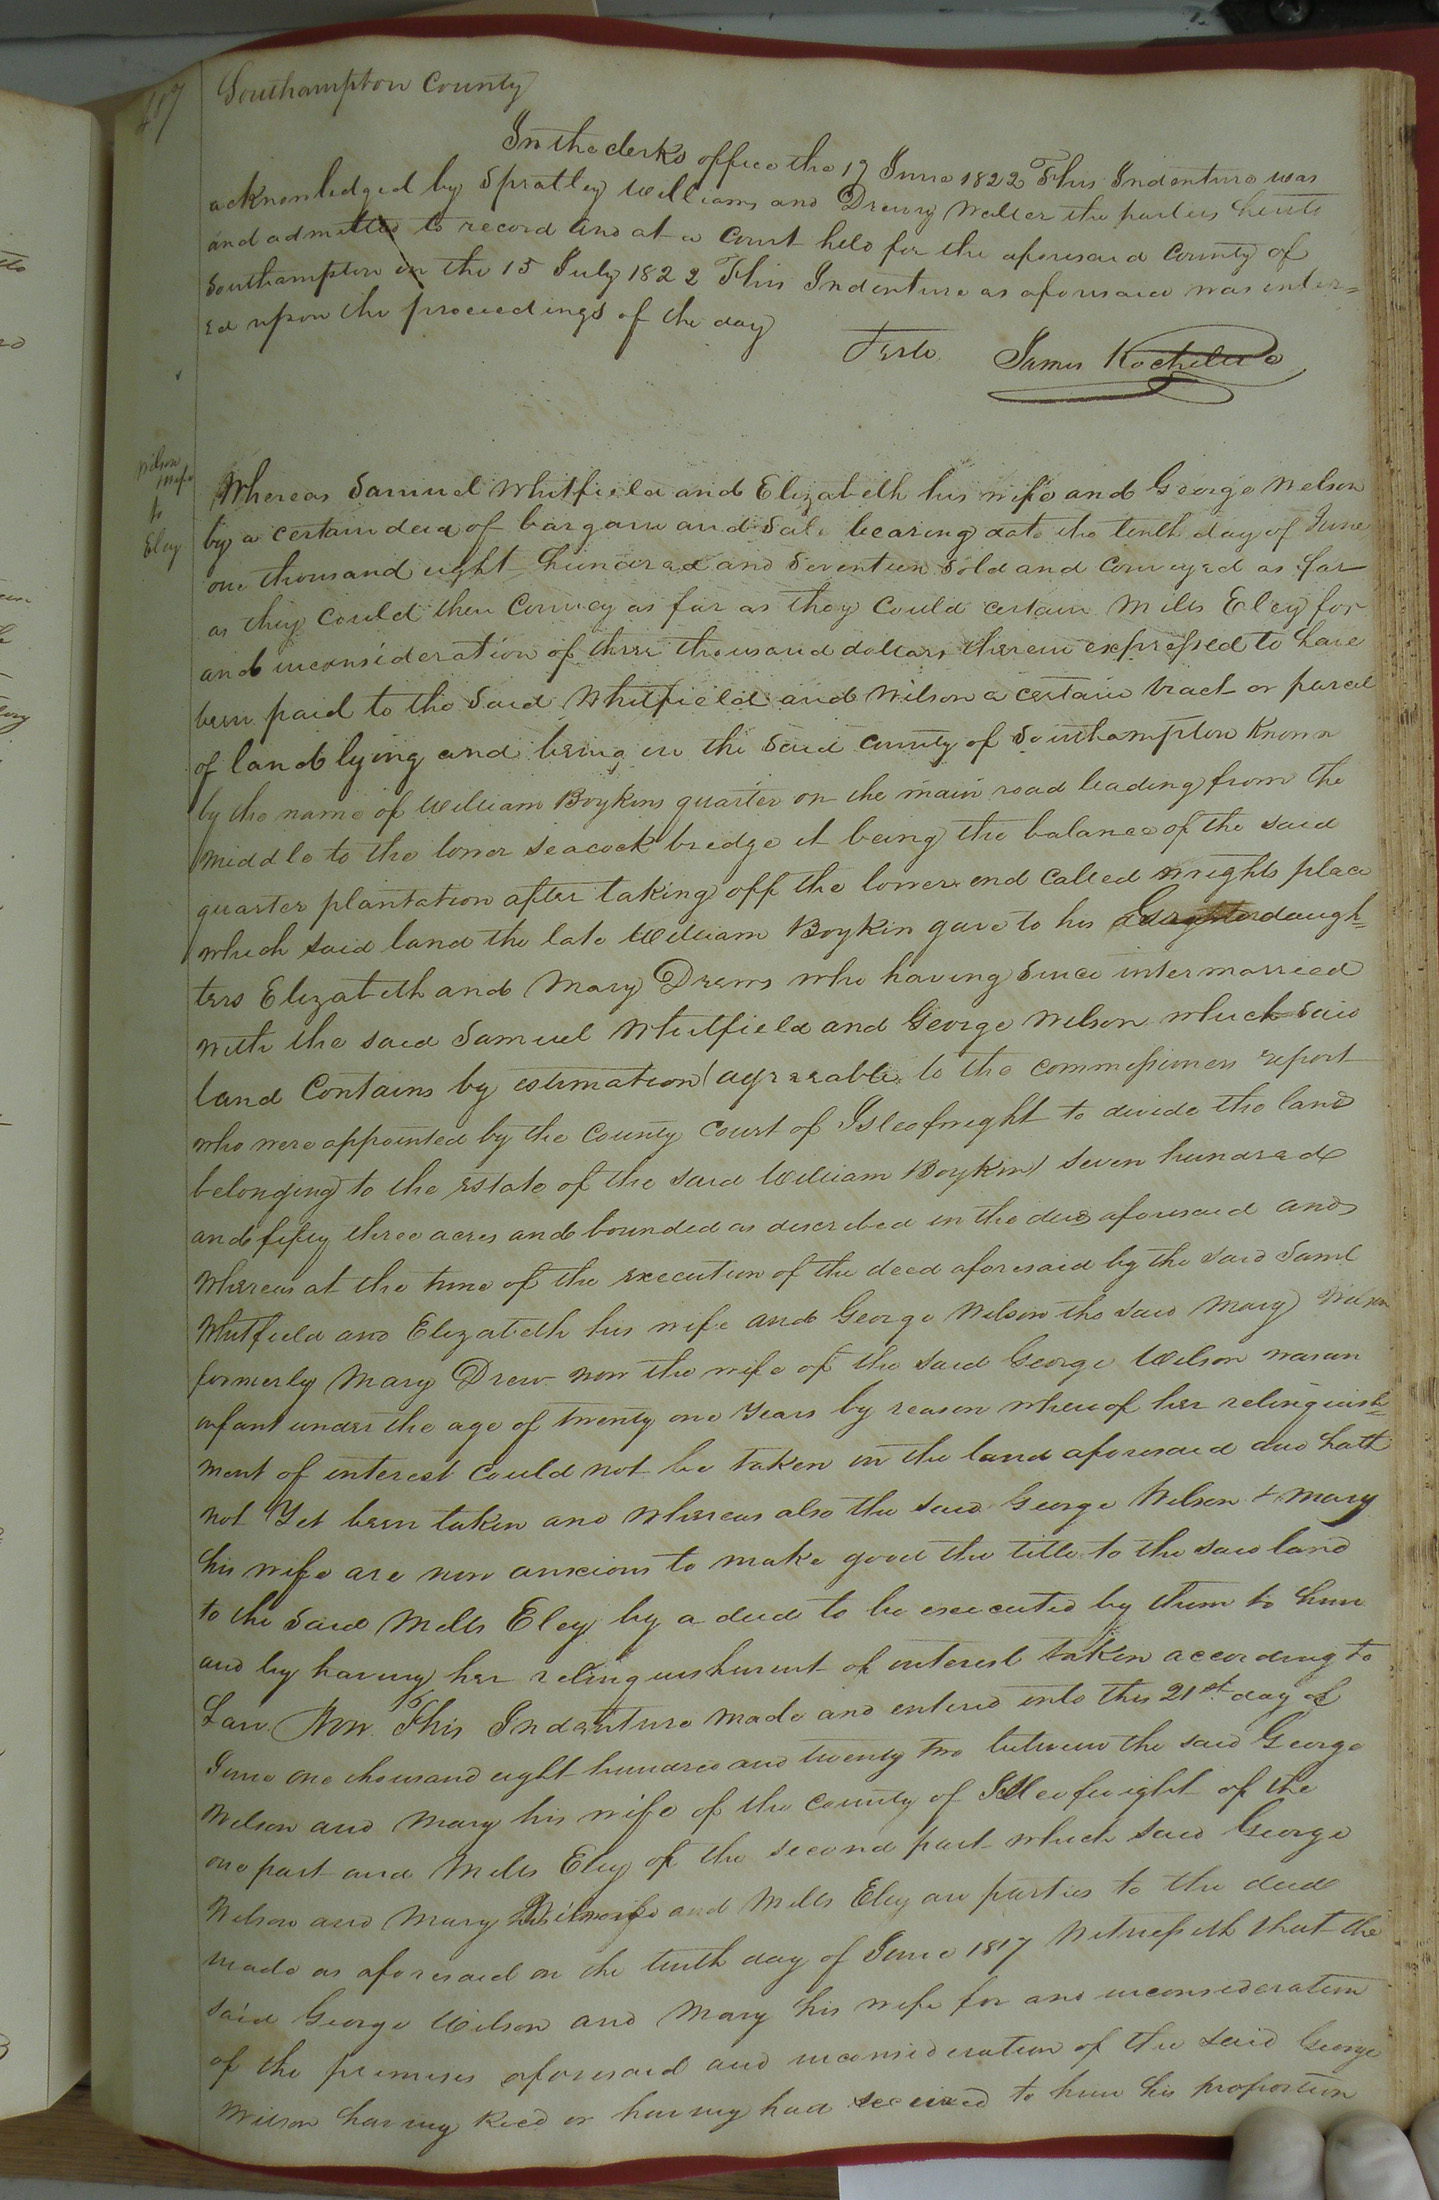 407
Southampton County
In the clerks office the 17 June 1822 This Indenture was
acknowledged by Spratley Williams and Drewry Waller the parties hereto
and admitted to record And at a Court held for the aforesaid County of
Southampton on the 15 July 1822 This Indenture as aforesaid was enter=
ed upon the proceedings of the day
Teste James Rochelle
Wilson
& wife
to
Eley
Whereas Samuel Whitfield and Elizabeth his wife and George Wilson
by a certain deed of bargain and Sale bearing date the tenth day of June
one thousand eight hundred and Seventeen Sold and Conveyed as far
as they Could then Convey as far as they Could certain Mills Eley for
and inconsideration of three thousand dollars therein expressed to have
been paid to the Said Whitfield and Wilson a certain tract or parcel
of land lying and being in the Said County of Southampton known
by the name of William Boykins quarter on the main road leading from the
middle to the lower seacock bridge it being the balance of the said
quarter plantation after taking off the lower end called wrights place
which said land the late William Boykin gave to his daugh=
ters Elizabeth and Mary Drews who having Since intermarried
with the said Samuel Whitfield and George Wilson which Said
land Contains by estimation (agreeable to the commissioners report
who were appointed by the County Court of Isleofwright to devide the land
belonging to the estate of the said William Boykin) seven hundred
and fifty three acres and bounded as described in the deed aforesaid and
Whereas at the time of the execution of the deed aforesaid by the said Saml
Whitfield and Elizabeth his wife and George Wilson the said Mary Wilson
formerly Mary Drew now the wife of the said George Wilson was an
infant under the age of twenty one Years by reason whereof her relinquish=
ment of interest Could not be taken in the land aforesaid and hath
not Yet been taken and whereas also the said George Wilson & Mary
his wife are now anxious to make good the title to the said land
to the Said Mills Eley by a deed to be executed by them to him
and by having her relinquishment of interest taken according to
Law. Now This Indenture made and entered into this 21st day of
June one thousand eight hundred and twenty two between the said George
Wilson and Mary his wife of the County of Isleofwight of the
one part and Mills Eley of the second part which said George
Wilson and Mary his wife and Mills Eley are parties to the deed
made as aforesaid on the tenth day of June 1817 Witnesseth that the
said George Wilson and Mary his wife for and inconsideration
of the premises aforesaid and inconsideration of the said George
Wilson having Recd or having had received to him his proportion